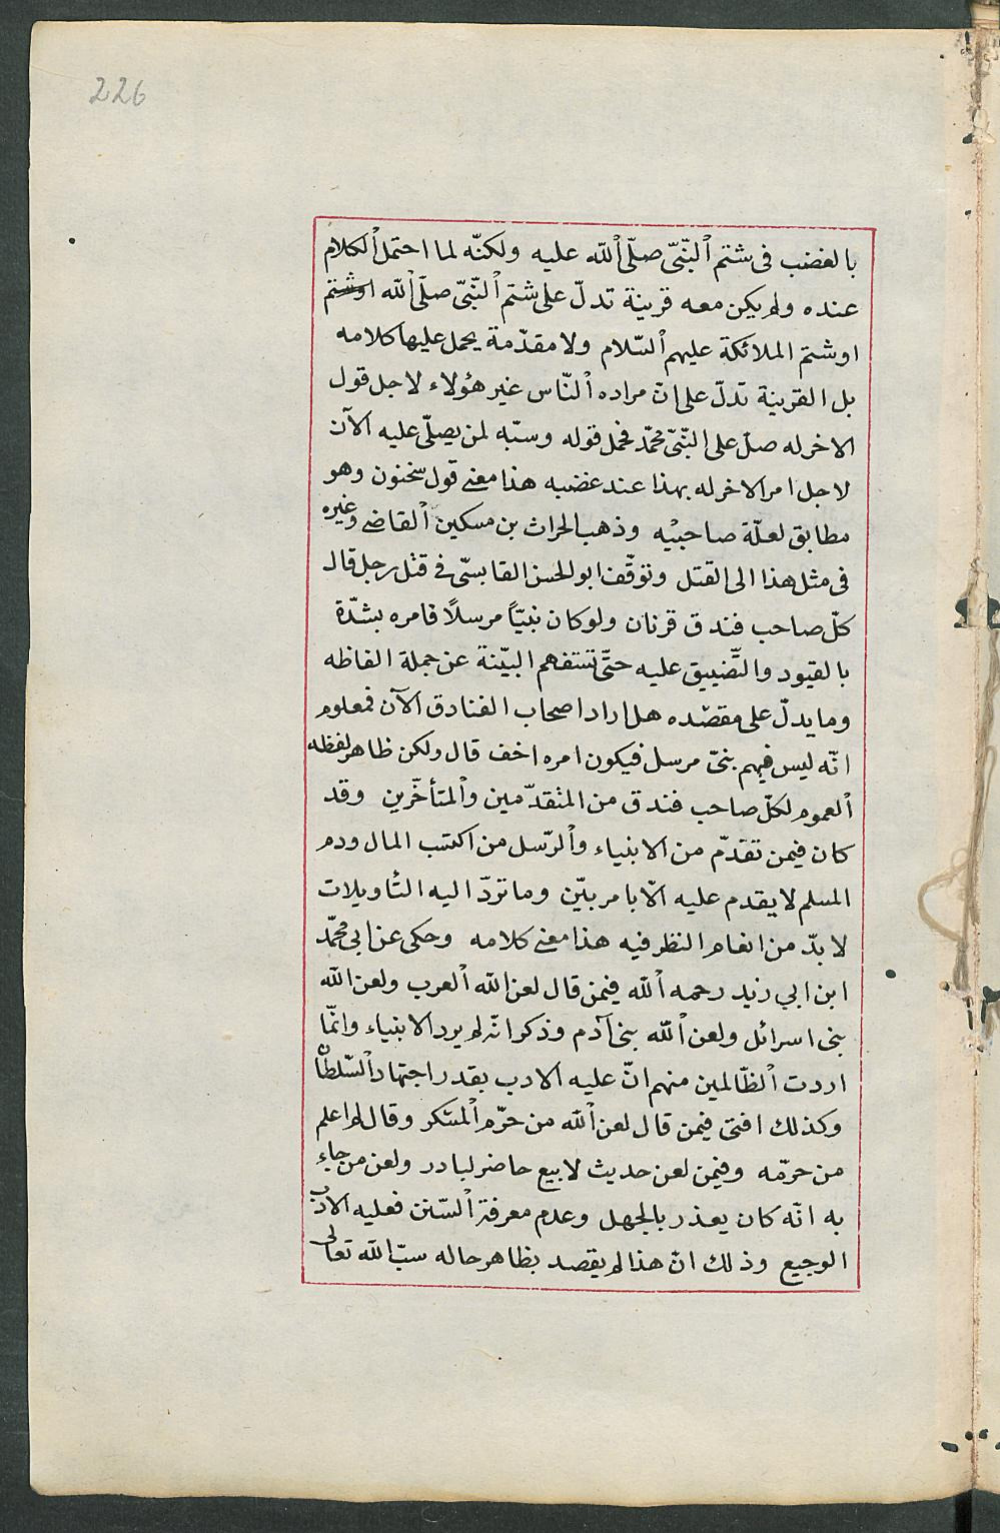 226
بالغضب فى شتم ألنّبىّ صلّى ألله عليه ولكنّه لما احتمل ألكلام
عنده ولم يكن معه قرينة تدلّ على شتم ألنّبىّ صلّى ألله اوشتم
اوشتم الملائكة عليهم ألسّلام ولا مقدّمة يحمل عليها كلامه
بل القرينة تدلّ على انّ مراده ألنّاس غير هؤلاء لاجل قول
الاخر له صلّ على النّبىّ محمّد فحمل قوله وسبّه لمن يصلّى عليه الآن
لاجل امر الاخر له بهذا عند غضبه هذا معنے قول سخنون وهو
مطابق لعلّة صاحبيْه وذهب الحراث بن مسكين ألقاضے وغيره
فى مثل هذا الى القتل وتوقّف ابو الحسن القابسىّ فے قتل رجل قال
كلّ صاحب فندق قرنان ولو كان نبيّاً مرسلاً فامره بشدّة
بالقيود والتّضييق عليه حتّى تستفهم البيّنة عن جملة الفاظه
وما يدلّ على مقصّده هل اراد اصحاب الفنادق الآن فمعلوم
انّه ليس فيهم نبىّ مرسل فيكون امره اخف قال ولكن ظاهر لفظه
ألعموم لكلّ صاحب فندق من المتقدّمين وألمتأخّرين وقد
كان فيمن تقدّم من الانبياء وألرّسل من اكتسب المال ودم
المسلم لا يقدم عليه الّا بامر بيّن وما تردّ اليه التّأويلات
لا بدّ من انغام النظر فيه هذا معنے كلامه وحكى عن ابى محمّد
ابن ابي زيد رحمه ألله فيمن قال لعن الله ألعرب ولعن الله
بنى اسرائل ولعن ألله بنى آدم وذكر انّه لم يرد الانبياء وانّما
اردت ألظّالمين منهم انّ عليه الادب بقدر اجتهاد ألسّلطان
وكذلك افتى فيمن قال لعن ألله من حرّم ألمسكر وقال لم اعلم
من حرّمه وفيمن لعن حديث لا بيع حاضر لبادر ولعن من جاء
به انّه كان يعذر بالجهل وعدم معرفة ألسّنن فعليه الادب
الوجيع وذلك انّ هذا لم يقصد بظاهر حاله سبّ الله تعالى